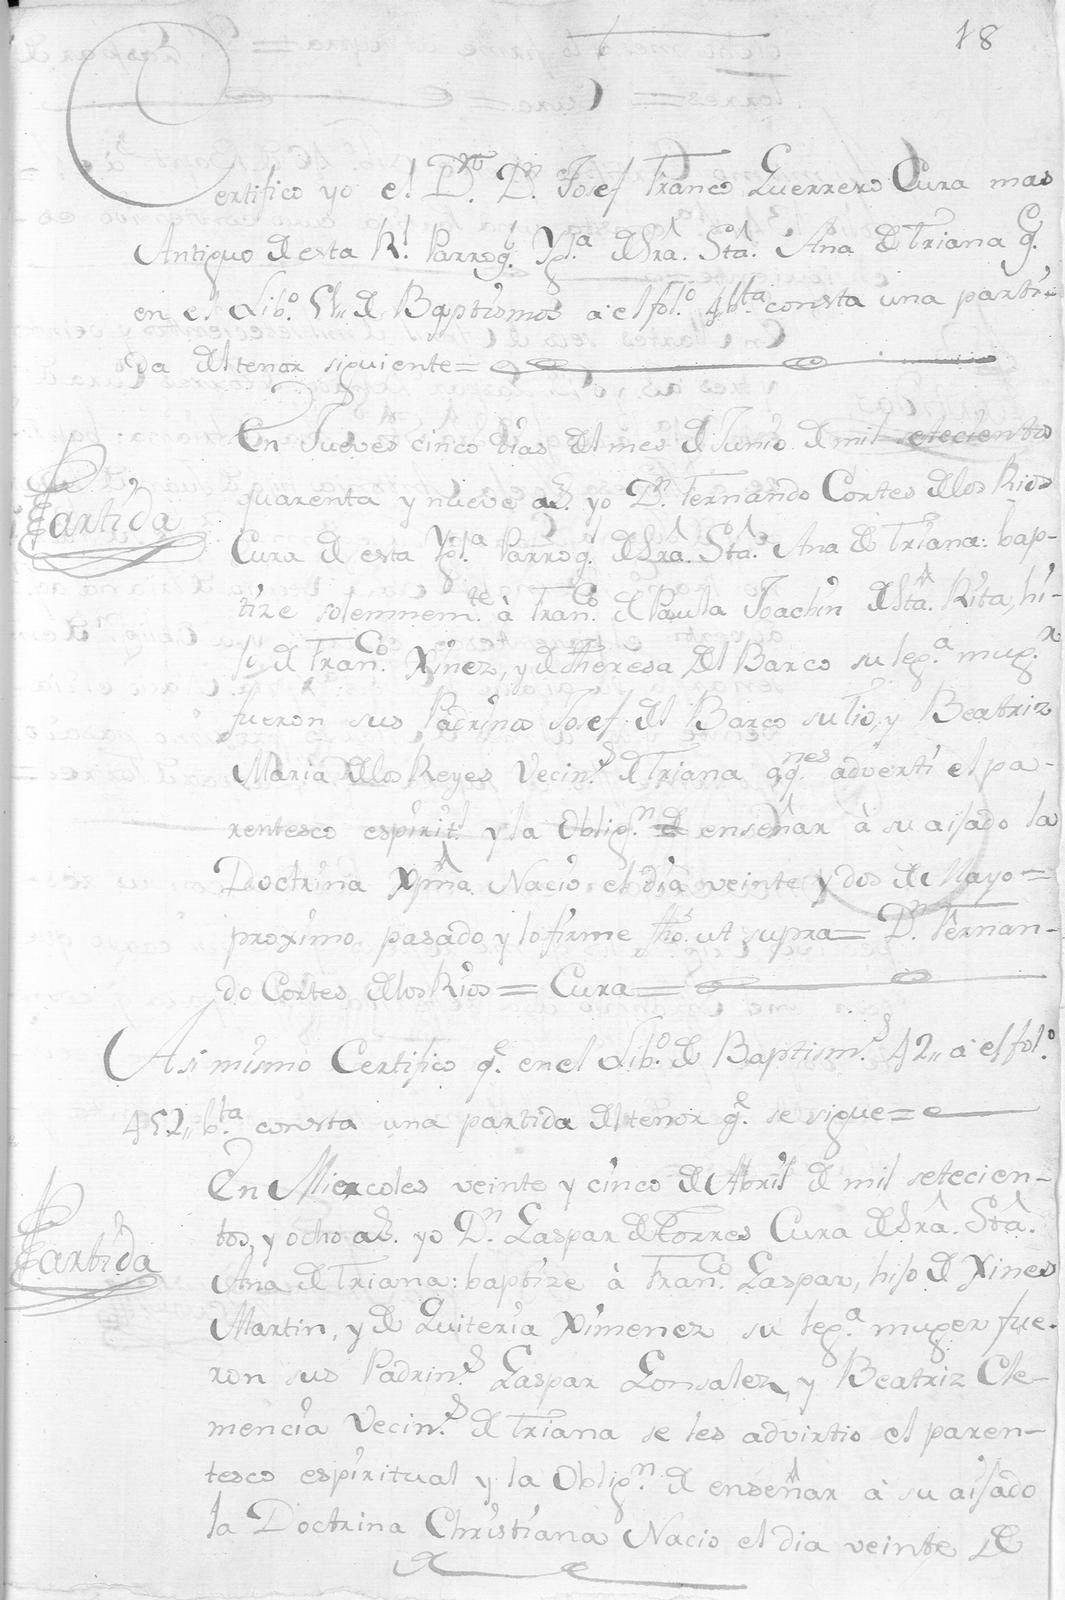 18
Certifico yo el Dr. Dn. Josef Franco Guerrero Cura mas
Antiguo de esta Rl. Parroql. Yglª. de Sra. Sta. Ana de Triana q.e
en el Libº. 51,, de Baptismos a el folº. 46 bta. consta una parti-
da del tenor siguiente=
Partida
En Jueves cinco dias del mes de Junio de mil setecientos
quarenta y nueve as. yo Dn. Fernando Cortes de los Rios
Cura de esta Yglª. Parroql. de Sra. Sta. Ana de Triana: bap-
tize solemnemte. à Franco. de Paula Joachin de Sta. Rita, hi-
jo de Franco. Xinez, y de Theresa del Barco su legª. mugr.
fueron sus Padrinos Josef del Barco su tio, y Beatriz
Maria de los Reyes Vecins. de Triana a qnes. adverti el pa-
rentesco espiritl. y la Oblign. de enseñar à su aijado la
Doctrina Xpna. Nacio el dia veinte y dos de Mayo=
proximo pasado y lo firme fho. ut supra= Dn. Fernan-
do Cortes de los Rios= Cura=
Asi mismo Certifico q.e en el Libº. de Baptisms. 42,, a el folº.
452,, bta. consta una partida del tenor q.e se sigue=
Partida
En Miercoles veinte y cinco de Abril de mil setecien-
tos, y ocho as. yo Dn. Gaspar de Torres Cura de Sra. Sta.
Ana de Triana: baptize à Franco. Gaspar, hijo de Xines
Martin, y de Quiteria Ximenez su legª. muger fue-
ron sus Padrins. Gaspar Gonsalez, y Beatriz Cle-
mencia Vecins. de Triana se les advirtio el paren-
tesco espiritual y la Oblign. de enseñar à su aijado
la Doctrina Christiana Nacio el dia veinte de